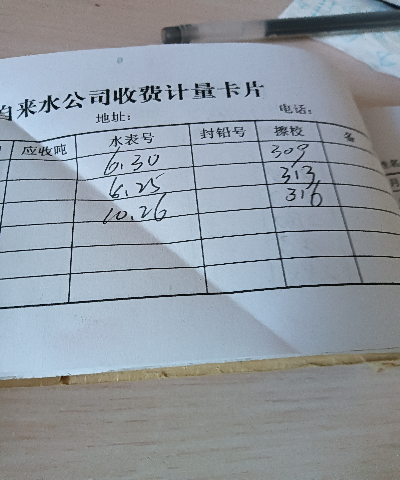 自来水公司收费计量卡片
地址: 电话:
应收吨 水表号 封铅号 擦校 备
6.30 309
6.25 313
10.26 316